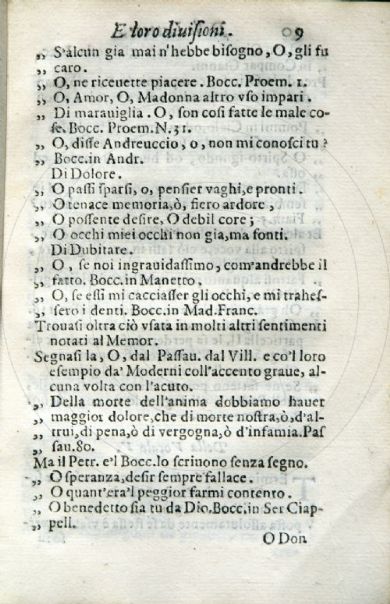 E loro diuisioni. 9
„ S'alcun gia mai n'hebbe bisogno, O, gli fu
„ caro.
„ O, ne riceuette piacere. Bocc. Proem. 1.
„ O, Amor, O, Madonna altro vso impari.
„ Di marauiglia. O, son cosi fatte le male co-
„ se. Bocc. Proem. N. 31.
„ O, disse Andreuccio, o, non mi conosci tu?
„ Bocc. in Andr.
Di Dolore.
„ O passi sparsi, o, pensier vaghi, e pronti.
„ O tenace memoria, ò, fiero ardore,
„ O possente desire, O debil core;
„ O occhi miei occhi non gia, ma fonti.
Di Dubitare.
„ O, se noi ingrauidassimo, com'andrebbe il
„ fatto. Bocc. in Manetto.
„ O, se essi mi cacciasser gli occhi, e mi trahes-
„ sero i denti. Bocc. in Mad. Franc.
Trouasi oltra ciò vsata in molti altri sentimenti
notati al Memor.
Segnasi la, O, dal Passau. dal Vill. e co'l loro
esempio da' Moderni coll'accento graue, al-
cuna volta con l'acuto.
„ Della morte dell'anima dobbiamo hauer
„ maggior dolore, che di morte nostra, ò, d'al-
„ trui, di pena, ò di vergogna, ò d'infamia. Pas
„ sau. 80.
Ma il Petr. e'l Bocc. lo scriuono senza segno.
„ O speranza, desir sempre fallace.
„ O quant'era'l peggior farmi contento.
„ O benedetto sia tu da Dio. Bocc. in Ser Ciap-
„ pell.
O Don